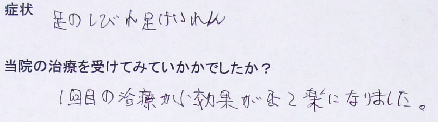 症状
足のしびれ足けいれん
当院の治療を受けてみていかがでしたか？
1回目の治療から効果が出て楽になりました。